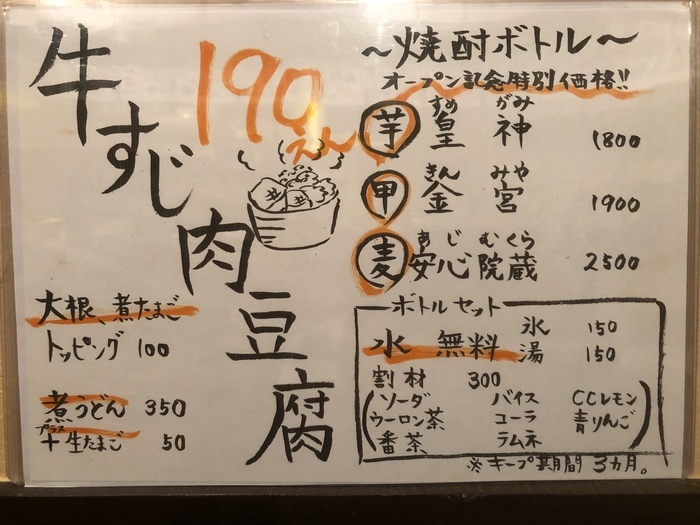 牛すじ肉豆腐
190えん
大根、煮たまご
トッピング 100
煮うどん 350
プラス
+生たまご 50
~焼酎ボトル~
オープン記念特別価格!!
すめ がみ
芋 皇 神 1800
きん みや
甲 金 宮 1900
あじ むくら
麦 安心院蔵 2500
ボトルセット
氷 150
水 無料 湯 150
割材 300
ソーダ バイス CCレモン
ウーロン茶 コーラ 青りんご
番茶 ラムネ
※キープ期間 3カ月。